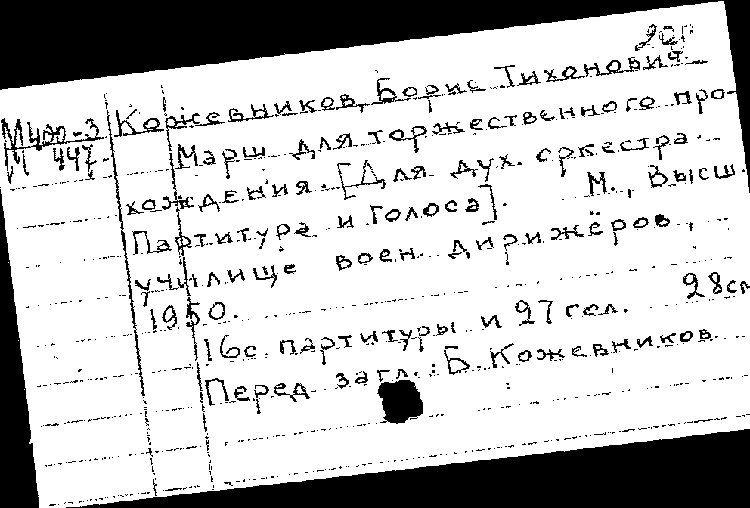 20р
М400-3
М 447
Кожевников, Борис Тихонович
Марш для торжественного про-
хождения. [Для дух. оркестра.
Партитура и голоса]. М., Высш.
училище воен. дирижёров,
1950.
16с. партитуры и 27 гол. 28см
Перед загл.: Б. Кожевников